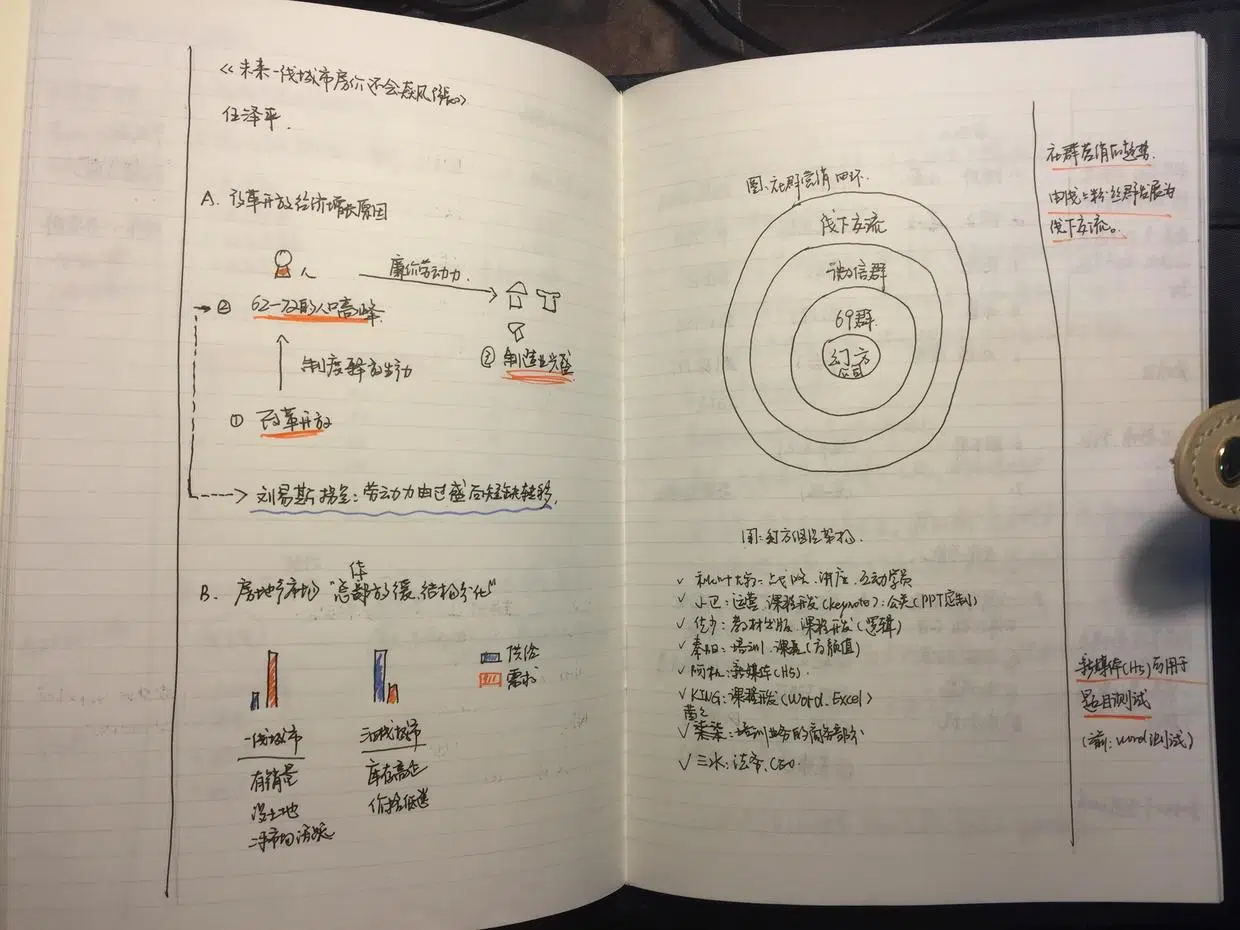 《未来一线城市房价还会疯涨》
任泽平
A. 改革开放经济增长原因
人
廉价劳动力
② 62-72的人口高峰
制度释放生产力
③ 制造业兴盛
① 改革开放
刘易斯拐点：劳动力由过盛向短缺转移
体
B. 房地产市场"总部放缓、结构分化"
供给
需求
一线城市
有销量
没土地
二手市场活跃
三四线城市
库存高企
价格低迷
图：社群营销四环
线下交流
微信群
69群
幻方
图：幻方组织架构
秋叶大叔：战略、讲座、互动学员
小巴：运营、课程开发(keynote)：公关(PPT定制)
佬少：教材出版、课程开发(逻辑)
秦阳：培训、课程(高颜值)
阿杭：新媒体(H5)
KING：课程开发(Word、Excel)
黄之
培训业务的商务部分
三水：法务、CEO
社群营销的趋势
由线上粉丝群发展为
线下交流。
新媒体(H5)应用于
题目测试
(前：word测试)